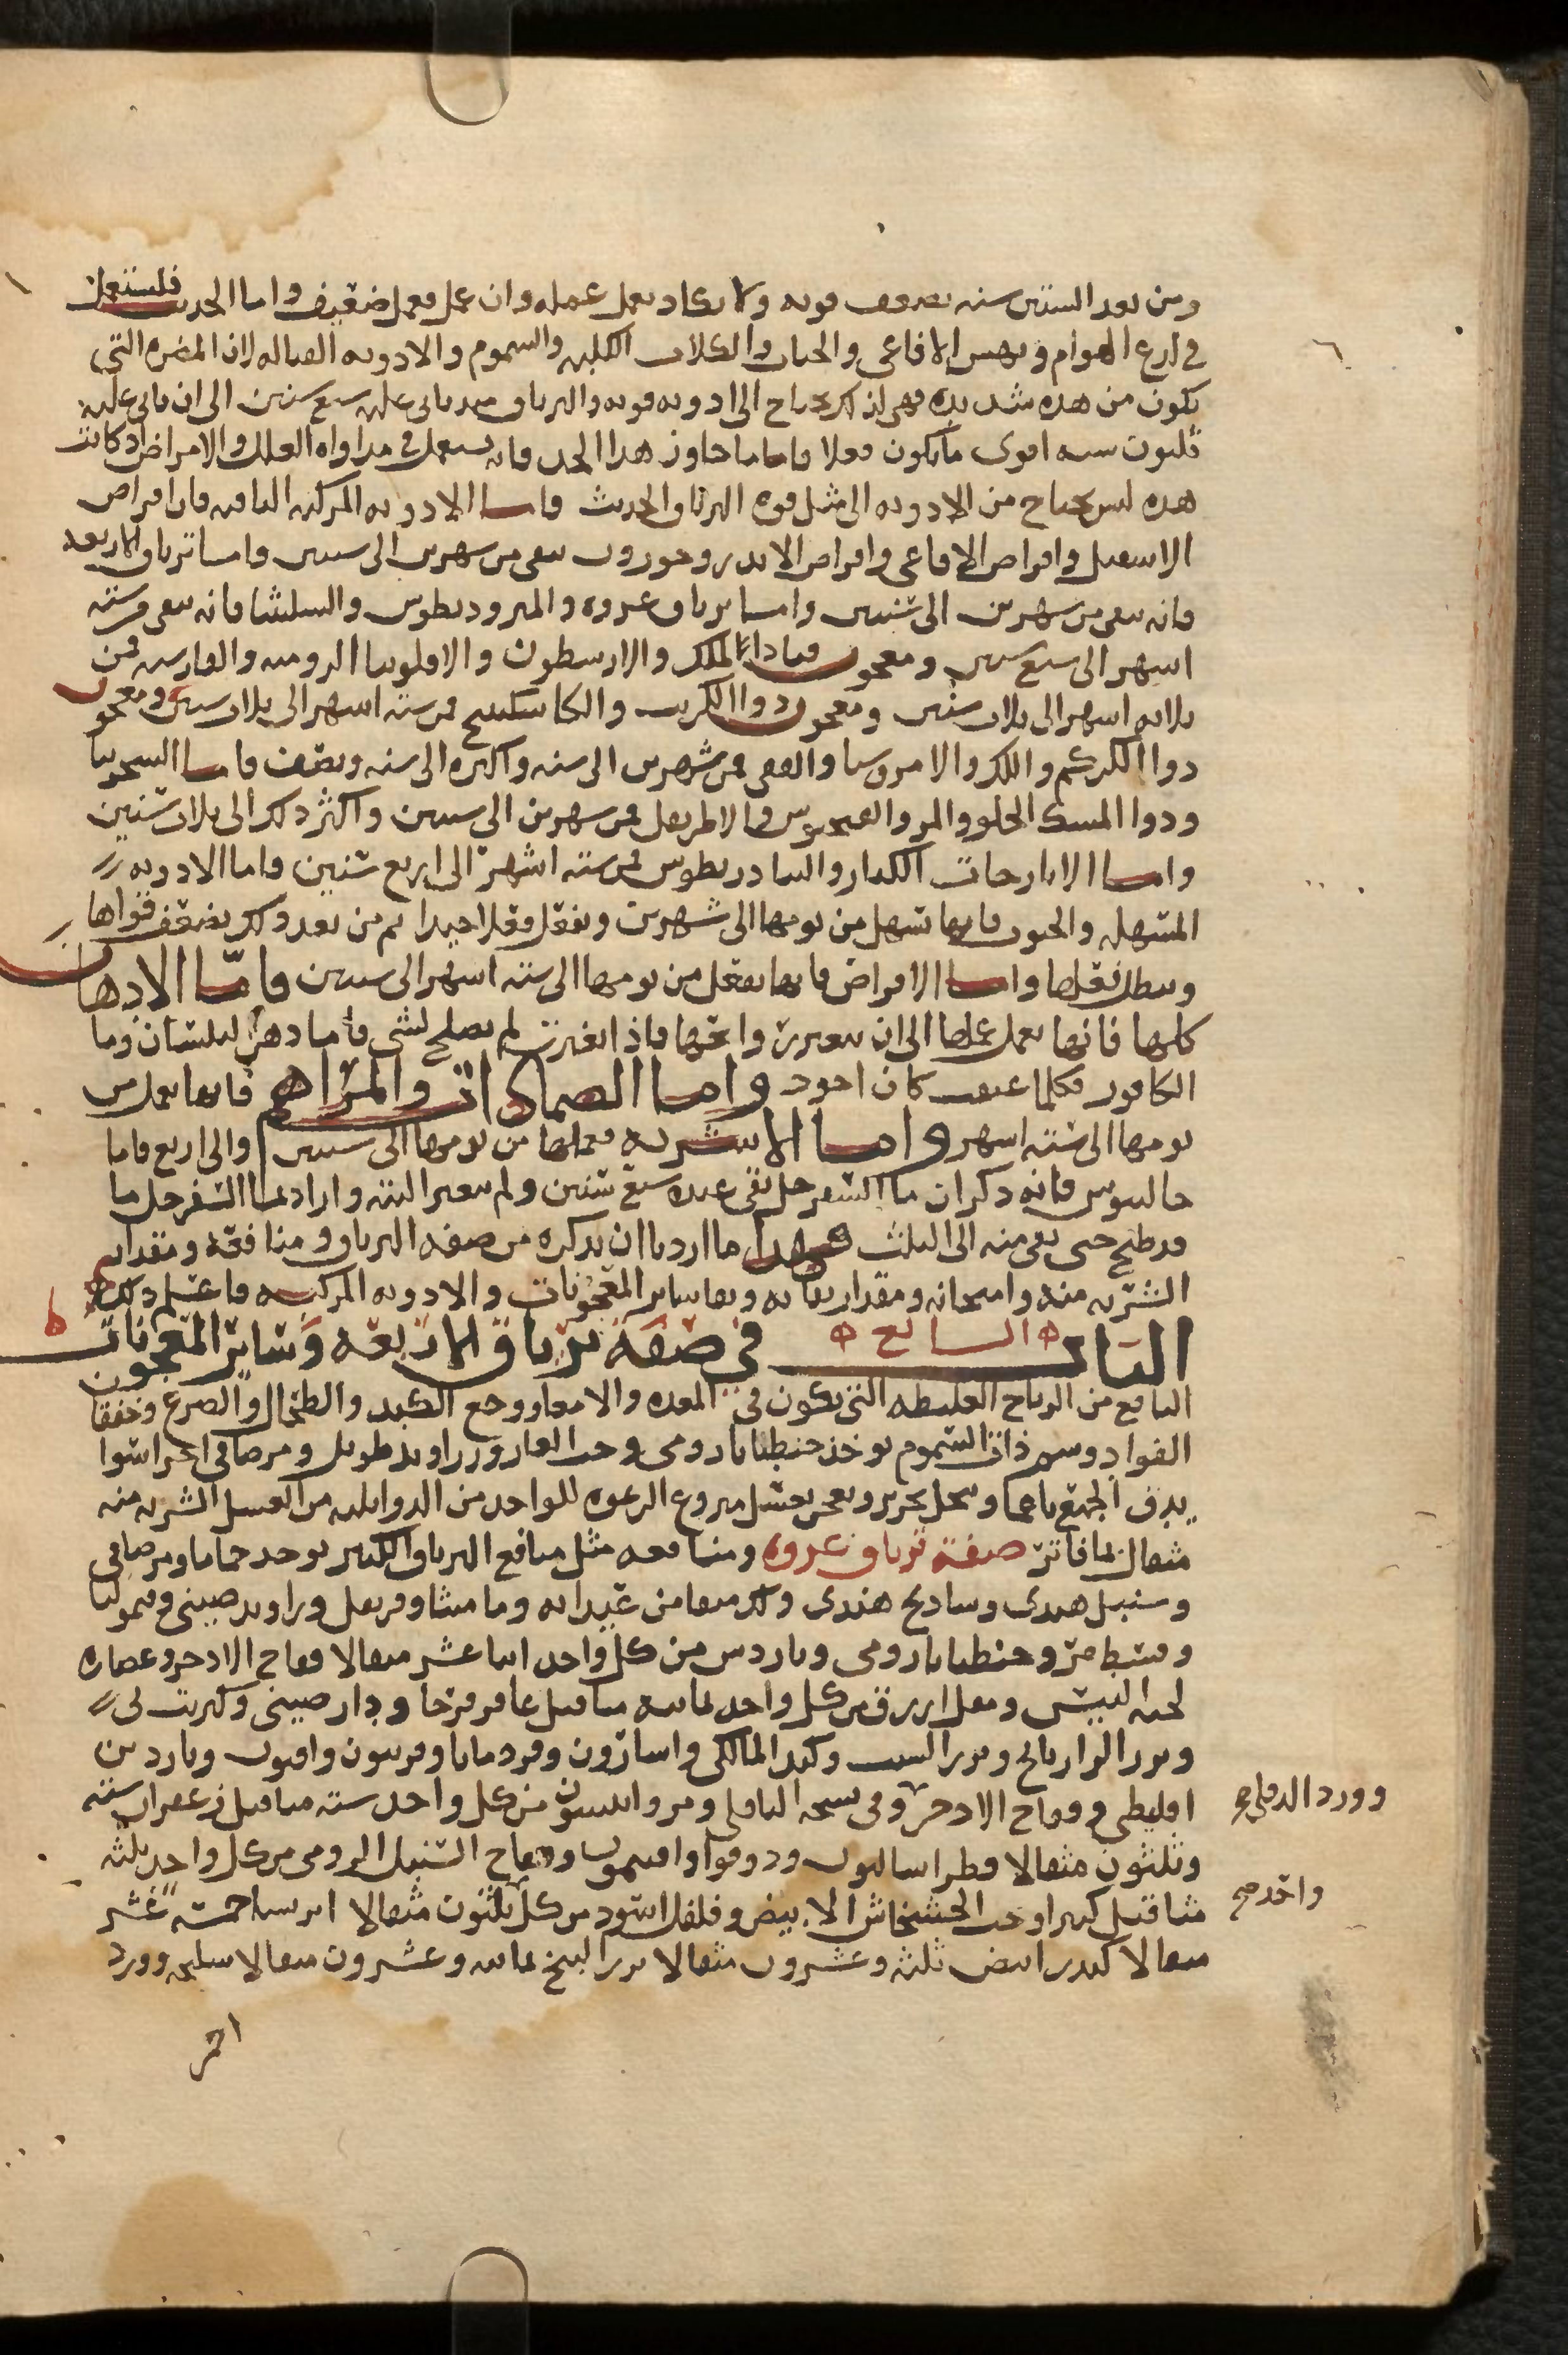 ومن بعد الستين سنه تضعف قوته ولا يكاد يعمل عمله وان عمل فعمل ضعيف واما الحديث فليستعمل
في لدغ الهوام ونهش الافاعي والحيات والكلاب الكلبه والسموم والادويه القتاله لان المضره التي
تكون من هذه شديده فهي لذلك تحتاج الى ادويه قويه والترياق منذ ياتي عليه سبع سنين الى ان ياتي عليه
ثلثون سنه اقوى ما يكون فعلا فاما ما جاوز هذا الحد فانه يستعمل في مداواه العلل والامراض اذ كانت
هذه ليس تحتاج من الادويه الى مثل قوه الترياق الحديث فاما الادويه المركبه الباقيه فان اقراص
الاسقيل واقراص الافاعي واقراص الاندروخورون تبقى من شهرين الى سنتين واما ترياق الاربعه
فانه يبقى من شهرين الى سنتين واما ترياق عزره والمثروديطوس والشليثا فانه يبقى من سته
اشهر الى سبع سنين ومعجون قباد الملك والارسطون والافلونيا الروميه والفارسيه فمن
ثلاثه اشهر الى ثلاث سنين ومعجون دوا الكبريت والكاسكبينج فمن سته اشهر الى ثلاث سنين ومعجون
دوا الكركم واللك والامروسيا والقفي فمن شهرين الى سنه واكثره الى سنه ونصف فاما السجزنيا
ودوا المسك الحلو والمر والفنجنوش والاطريفل فمن شهرين الى سنتين واكثر ذلك الى ثلاث سنين
واما الايارجات الكبار والتيادريطوس فمن سته اشهر الى اربع سنين واما الادويه
المسهله والحبوب فانها تسهل من يومها الى شهرين وتفعل فعلا جيدا ثم من بعد ذلك يضعف قواها
ويبطل فعلها واما الاقراص فانها تفعل من يومها الى سته اشهر الى سنتين فامّا الادهان
كلها فانها تعمل عملها الى ان تتغير رائحتها فاذا تغيرت لم تصلح لشي فاما دهن البلسان وما
الكافور فكلما عتقت كان اجود واما الضمادات والمراهم فانها تعمل من
يومها الى سته اشهر واما الاشربه فعملها من يومها الى سنتين والى اربع فاما
جالينوس فانه ذكر ان ما السفرجل بقي عنده سبع سنين ولم يتغير البته واراد بما السفرجل ما
قد طبخ حتى بقي منه الى الثلث فهذا ما اردنا ان نذكره من صفه الترياق ومنافعه ومقدار
الشربه منه وامتحانه ومقدار بقائه وبقا ساير المعجونات والادويه المركبه فاعلم ذلك
الباب السابع في صفة ترياق الاربعه وساير المعجونات
النافع من الرياح الغليظه التي تكون في المعده والامعا ووجع الكبد والطحال والصرع وخفقان
الفواد وسم ذوات السموم يوخذ جنطيانا رومي وحب الغار وزراوند طويل ومر صافي اجزا سوا
يدق الجميع ناعما وينخل بحرير ويعجن بعسل منزوع الرغوه للواحد من الدوا ثلثه من العسل الشربه منه
مثقال بما فاتر صفة ترياق عزره ومنافعه مثل منافع الترياق الكبير يوخذ حماما ومر صافي
وسنبل هندي وساذج هندي وفلفل وراوند صيني
وقسط مر وجنطيانا رومي وناردين من كل واحد اثنا عشر مثقالا فقاح الاذخر وعصاره
لحيه التيس ومقل ازرق من كل واحد ثمانيه مثاقيل عاقرقرحا ودارصيني وكبريت
وبزر الرازيانج وبزر السذاب واسارون وقردمانا وفربيون وافيون وناردين
اقليطي وفقاح الاذخر ومر وانيسون من كل واحد سته مثاقيل زعفران سته
وثلثون مثقالا فطراساليون ودوقوا وافيمون وفقاح السنبل الرومي من كل واحد ثلثه
مثاقيل كثيرا وحب الخشخاش الابيض وفلفل اسود من كل ثلثون مثقالا ايرسا خمسه عشر
مثقالا كندر ابيض ثلثه وعشرون مثقالا بزر البنج ثمانيه وعشرون مثقالا سليخه وورد
احمر
وورد الدفلى صح
واحد صح